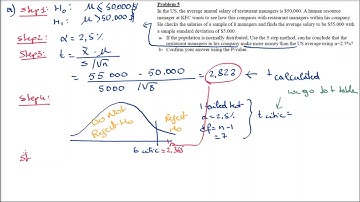 a) step1: Ho: µ ≤ 50000 $
H1: µ > 50.000 $
Problem 5
In the US, the average annual salary of restaurant managers is $50,000. A human resource
manager at KFC wants to see how this compares with restaurant managers within his company.
He checks the salaries of a sample of 8 managers and finds the average salary to be $55.000 with
a sample standard deviation of $5.000.
a- If the population is normally distributed. Use the 5 step method, can he conclude that the
restaurant managers in his company make more money than the US average using α=2.5%?
b- Confirm your answer using the P-value.
step2: α = 2,5%
step3: t = x̄ - µ
S / √n
= 55 000 - 50.000
5000 / √8
= 2,828
t calculated
we go to t table
step4:
Do Not
Reject Ho
Reject
Ho
t critic = 2,365
1 tailed test
α = 2.5%
df = n - 1
= 7
t critic =
st